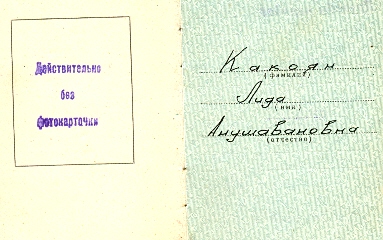 Действительно
без
фотокарточки
Какоян
(фамилия)
Лида
(имя)
Анушавановна
(отчество)